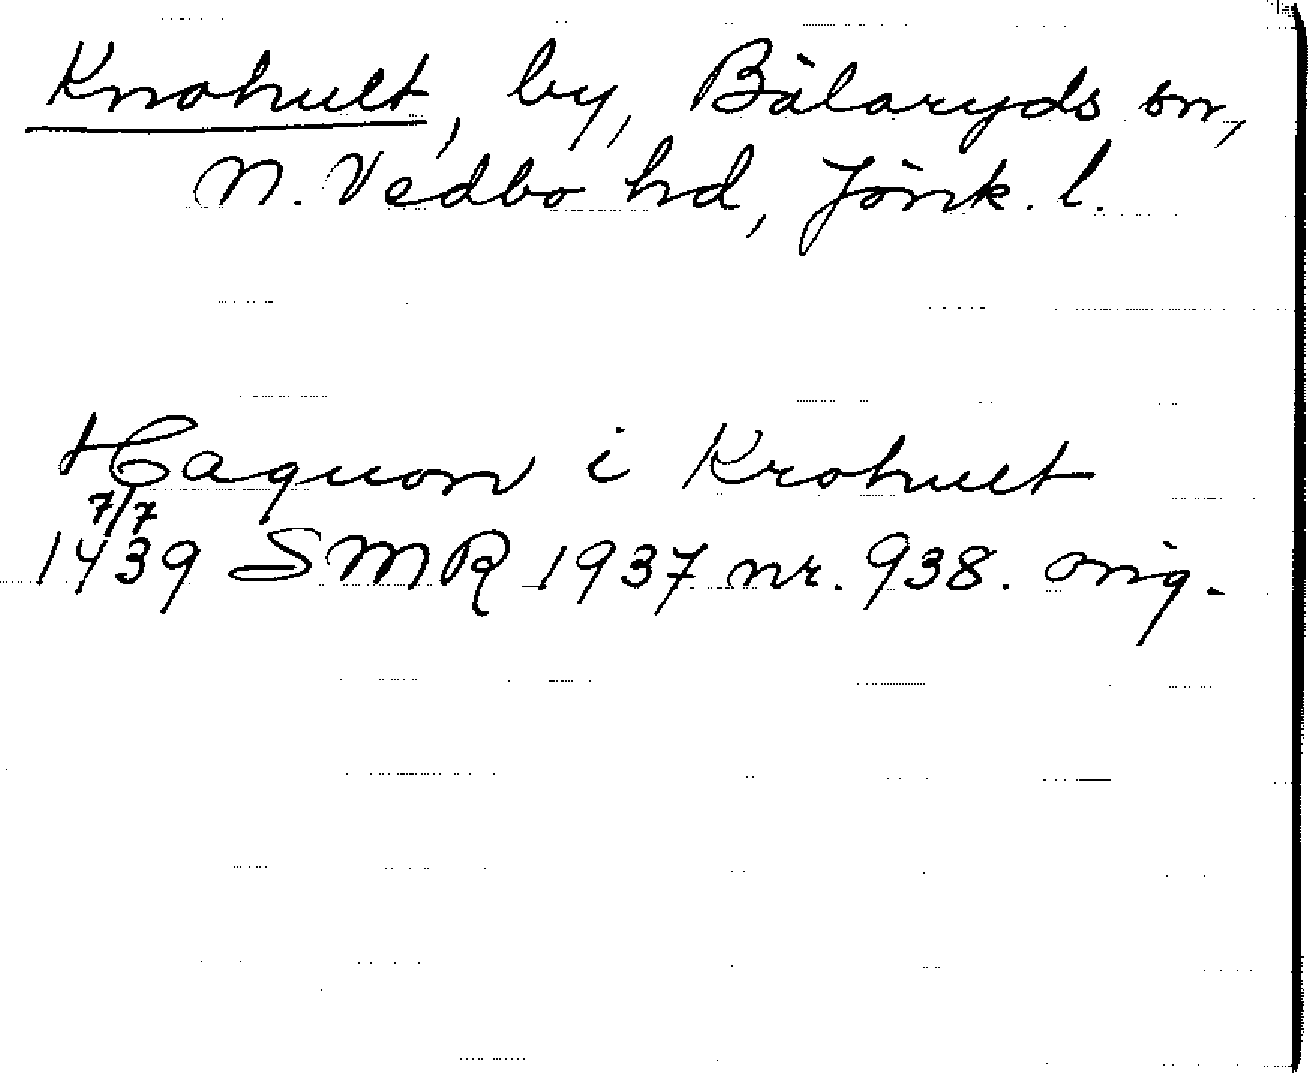 Knohult, by, Bälaryds sn,
N. Vedbo hd, Jönk. l.
Haquon i Krohult
7/7
1439 SMR 1937 nr. 938. orig.